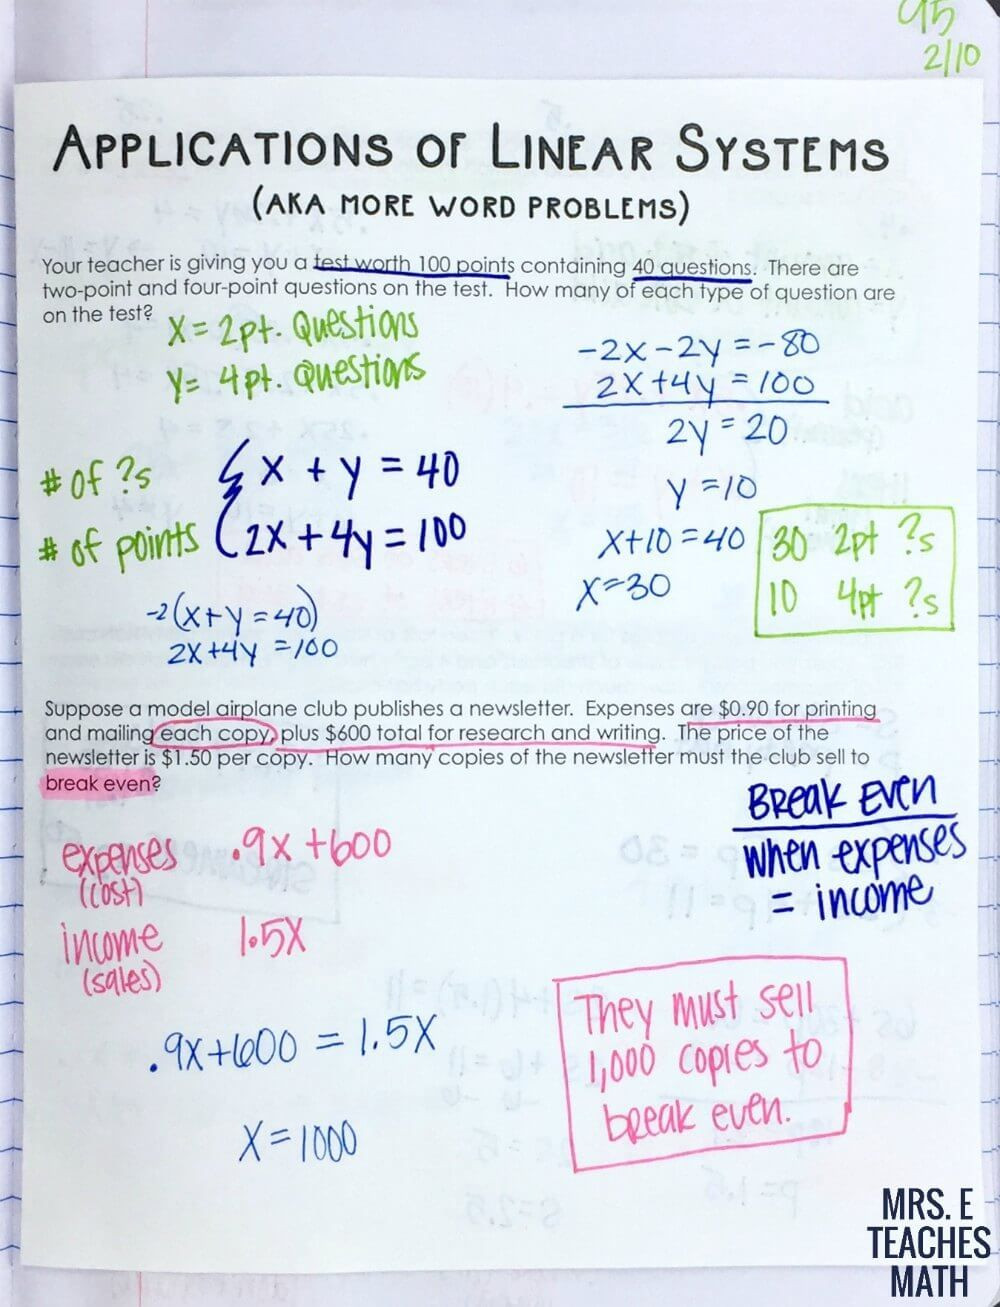 95
2/10
APPLICATIONS OF LINEAR SYSTEMS
(AKA MORE WORD PROBLEMS)
Your teacher is giving you a test worth 100 points containing 40 questions. There are
two-point and four-point questions on the test. How many of each type of question are
on the test?
X = 2pt. Questions
Y = 4pt. Questions
# of ?s
x + y = 40
# of points
2x + 4y = 100
-2(x + y = 40)
2x + 4y = 100
-2x - 2y = -80
2x + 4y = 100
2y = 20
y = 10
x + 10 = 40
x = 30
30 2pt ?s
10 4pt ?s
Suppose a model airplane club publishes a newsletter. Expenses are $0.90 for printing
and mailing each copy, plus $600 total for research and writing. The price of the
newsletter is $1.50 per copy. How many copies of the newsletter must the club sell to
break even?
Break Even
when expenses
= income
expenses .9x + 600
(cost)
income 1.5x
(sales)
.9x + 600 = 1.5x
x = 1000
They must sell
1,000 copies to
break even.
MRS. E
TEACHES
MATH